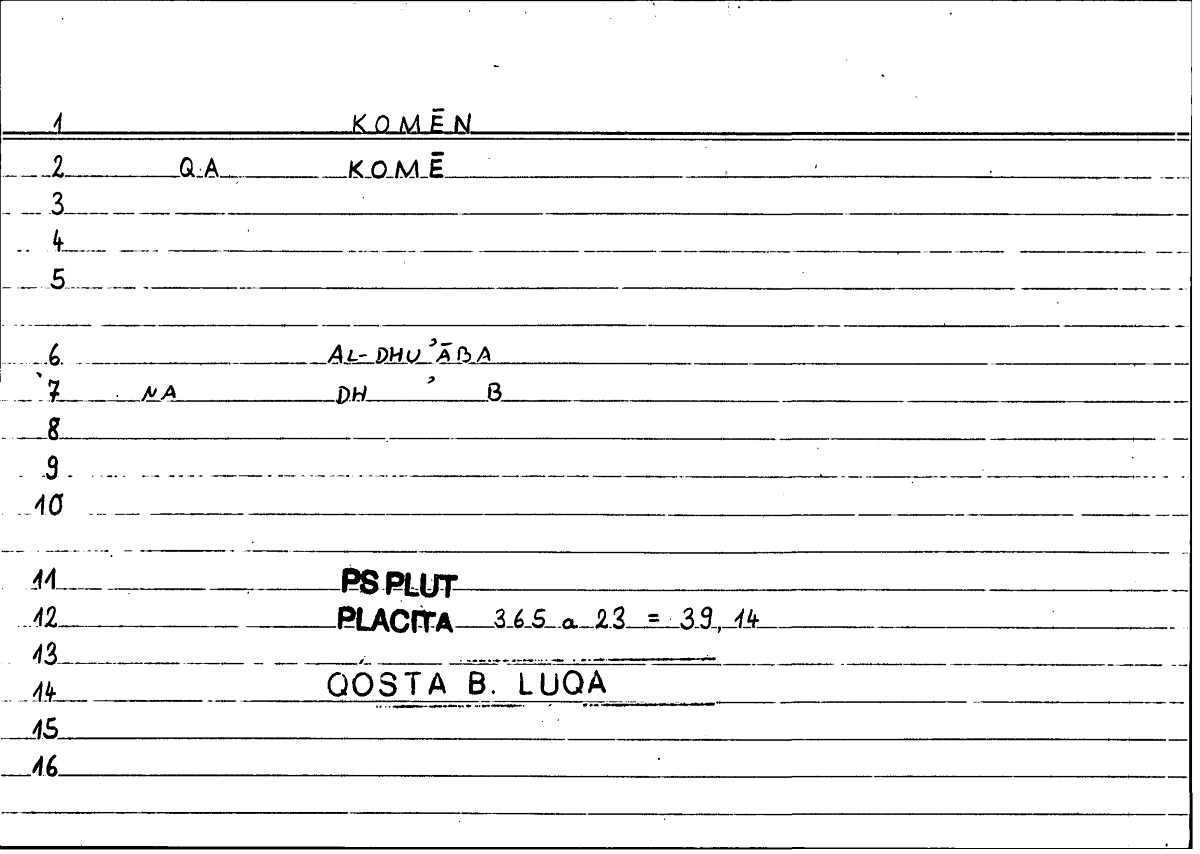 1 KOMĒN
2 QA KOMĒ
3
4
5
6 AL-DHU'ĀBA
7 NA DH ' B
8
9
10
11 PS PLUT
12 PLACITA 365 a 23 = 39, 14
13
14 QOSTA B. LUQA
15
16